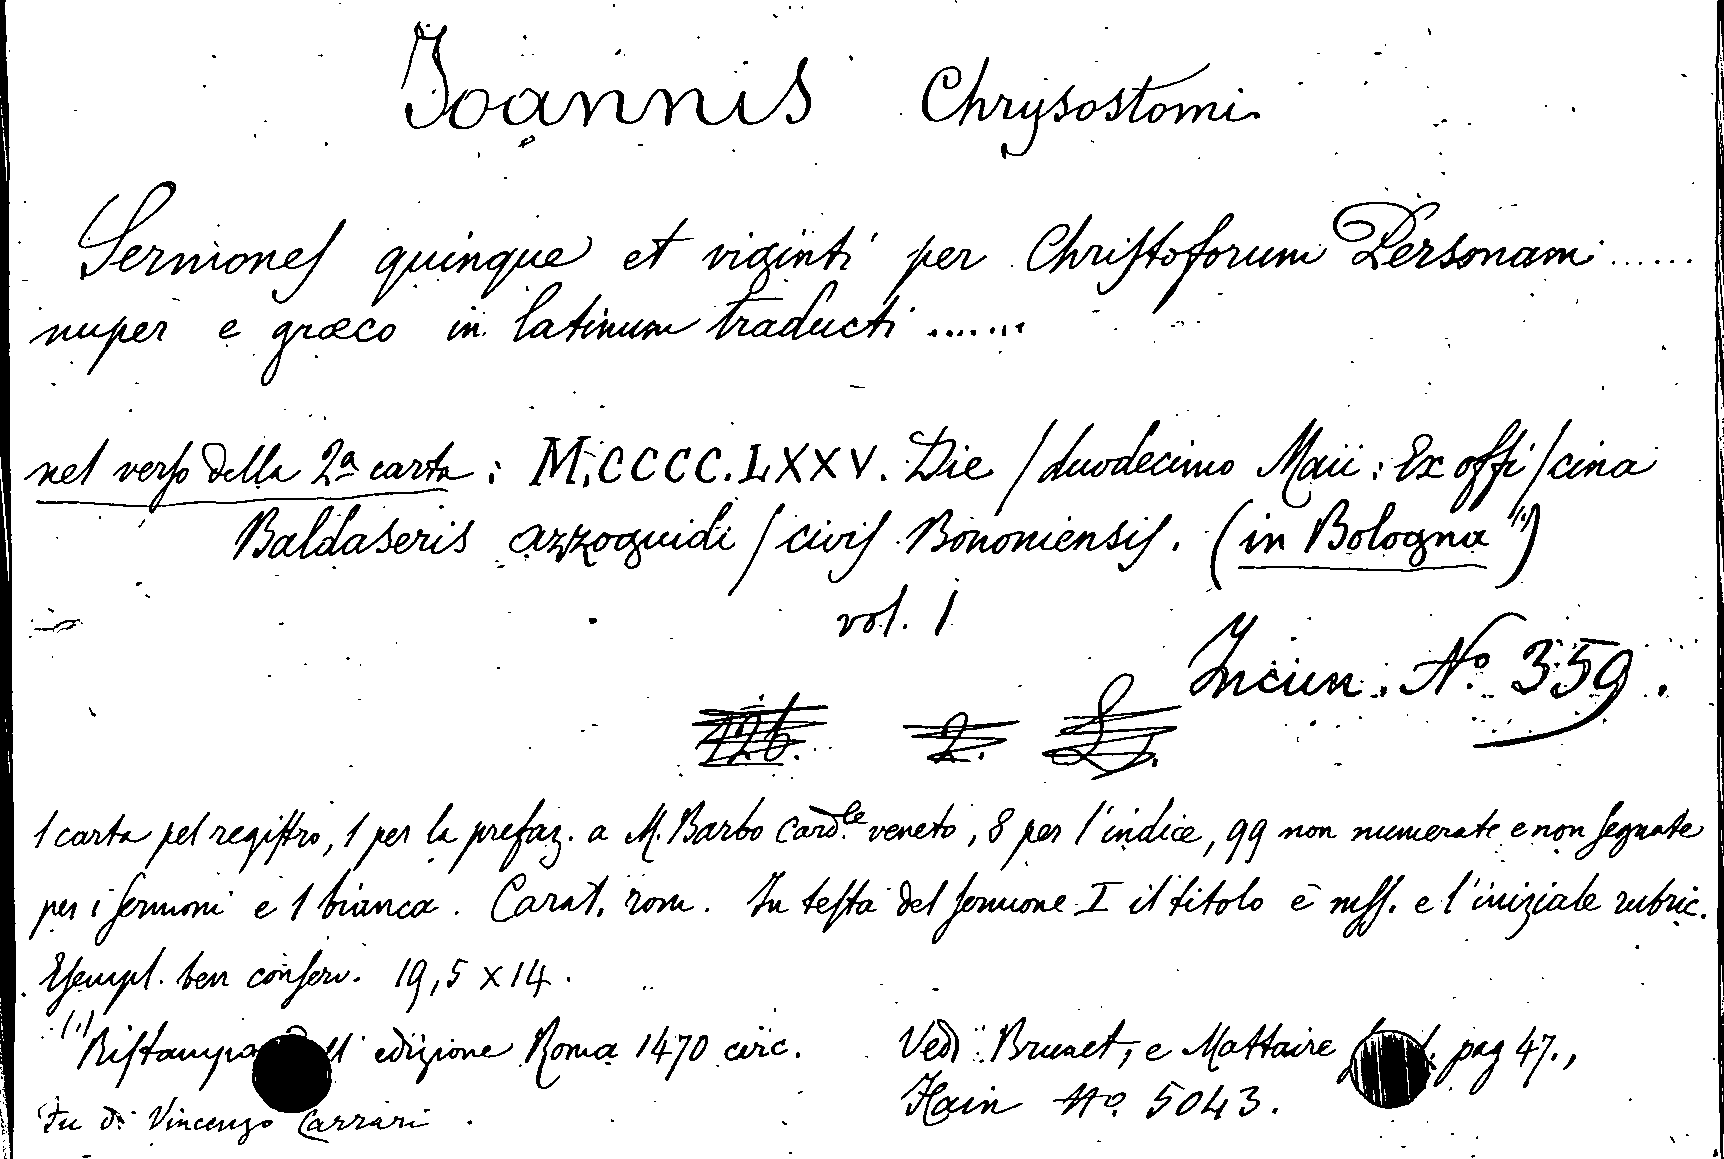 Joannis Chrysostomi
Sermones quinque et viginti per Christoforum Personam ......
nuper e græco in latinum traducti .......
nel verso della 2ª carta : M.CCCC.LXXV. Die / duodecimo Maii : Ex offi / cina
Baldaseris azzoguidi / civis Bononiensis. (in Bologna (1))
vol. 1
Incun. Nº 359.
126. 2.
1 carta pel registro, 1 per la prefaz. a M. Barbo Card.le veneto, 8 per l'indice, 99 non numerate e non segnate
per i sermoni e 1 bianca. Carat. rom. In testa del sermone I il titolo è mss. e l'iniziale rubric.
Esempl. ben conserv. 19,5 x 14.
(1) Ristampa dell' edizione Roma 1470 circ.
Fu di Vincenzo Carrari
Vedi : Brunet, e Mattaire pag 47.,
Hain Nº 5043.